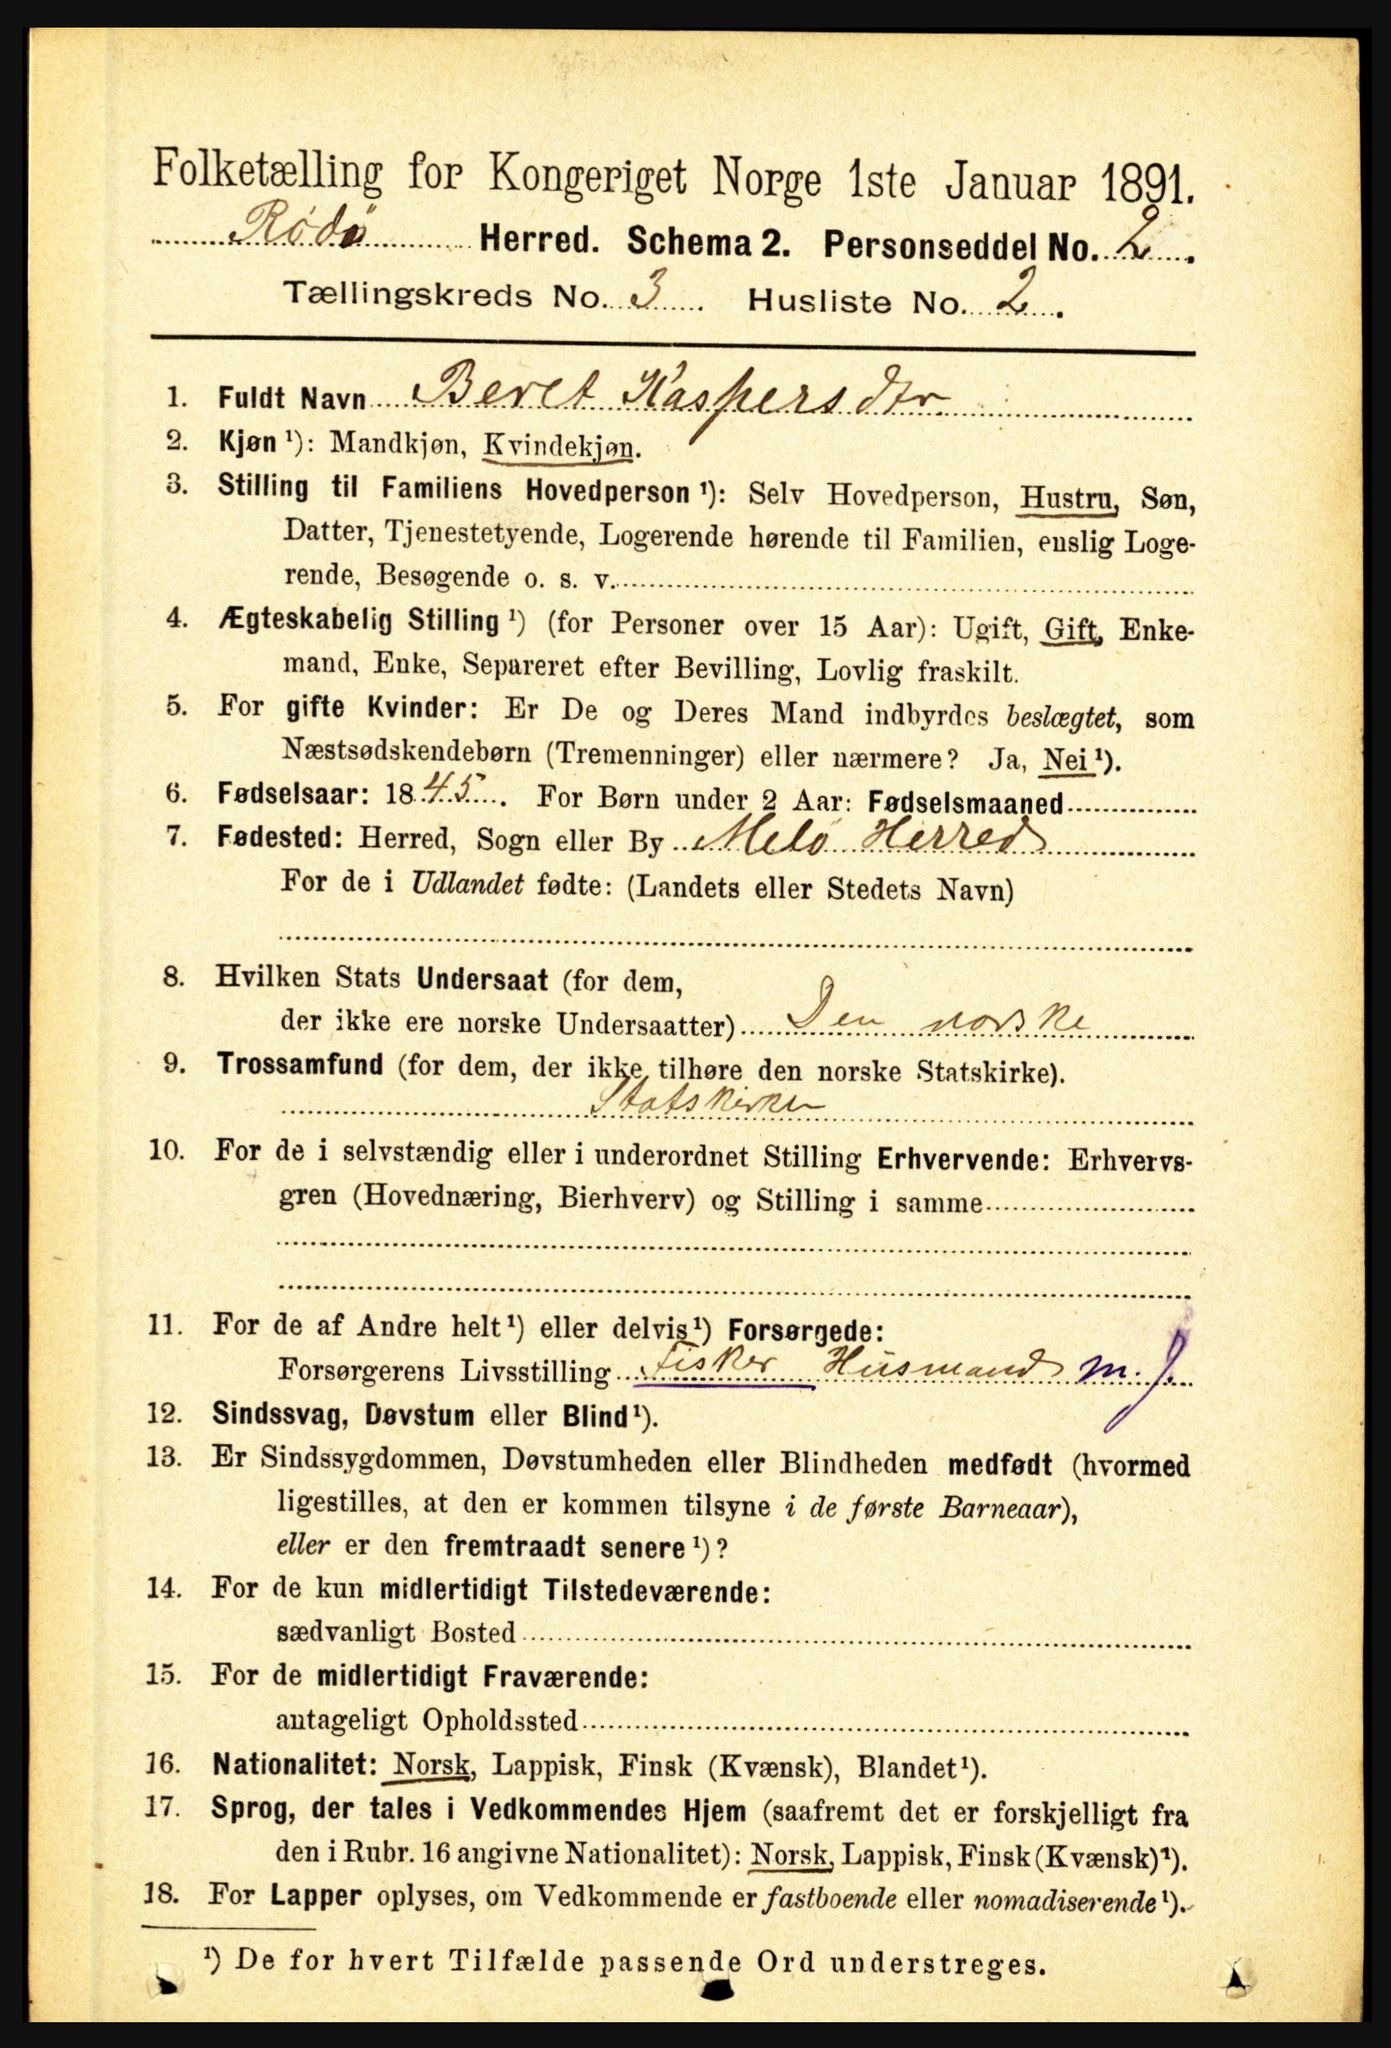 Folketælling for Kongeriget Norge 1ste Januar 1891.
Rødø Herred. Schema 2. Personseddel No. 2.
Tællingskreds No. 3. Husliste No. 2.
1. Fuldt Navn Beret Kaspersdtr
2. Kjøn¹): Mandkjøn, Kvindekjøn.
3. Stilling til Familiens Hovedperson¹): Selv Hovedperson, Hustru, Søn,
Datter, Tjenestetyende, Logerende hørende til Familien, enslig Loge-
rende, Besøgende o. s. v.
4. Ægteskabelig Stilling¹) (for Personer over 15 Aar): Ugift, Gift, Enke-
mand, Enke, Separeret efter Bevilling, Lovlig fraskilt.
5. For gifte Kvinder: Er De og Deres Mand indbyrdes beslægtet, som
Næstsødskendebørn (Tremenninger) eller nærmere? Ja, Nei¹).
6. Fødselsaar: 1845. For Børn under 2 Aar: Fødselsmaaned
7. Fødested: Herred, Sogn eller By Melø Herred
For de i Udlandet fødte: (Landets eller Stedets Navn)
8. Hvilken Stats Undersaat (for dem,
der ikke ere norske Undersaatter) Den norske
9. Trossamfund (for dem, der ikke tilhøre den norske Statskirke).
Statskirken
10. For de i selvstændig eller i underordnet Stilling Erhvervende: Erhvervs-
gren (Hovednæring, Bierhverv) og Stilling i samme
11. For de af Andre helt¹) eller delvis¹) Forsørgede:
Forsørgerens Livsstilling Fisker Husmand m. J.
12. Sindssvag, Døvstum eller Blind¹).
13. Er Sindssygdommen, Døvstumheden eller Blindheden medfødt (hvormed
ligestilles, at den er kommen tilsyne i de første Barneaar),
eller er den fremtraadt senere¹)?
14. For de kun midlertidigt Tilstedeværende:
sædvanligt Bosted
15. For de midlertidigt Fraværende:
antageligt Opholdssted
16. Nationalitet: Norsk, Lappisk, Finsk (Kvænsk), Blandet¹).
17. Sprog, der tales i Vedkommendes Hjem (saafremt det er forskjelligt fra
den i Rubr. 16 angivne Nationalitet): Norsk, Lappisk, Finsk (Kvænsk)¹).
18. For Lapper oplyses, om Vedkommende er fastboende eller nomadiserende¹).
¹) De for hvert Tilfælde passende Ord understreges.